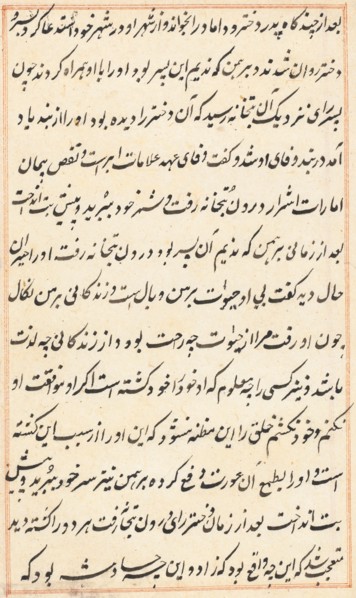 بعد از چند گاه پدر دختر و داماد را بخواند و از شهر او در شهر خود استدعا کرد پسر و
دختر روان شدند و برهمن که ندیم این پسر بود او را با او همراه کردند چون
پسر رای نزدیک آن بتخانه رسید که آن دختر را دیده بود او را از بند یاد
آمد در بند وفای او شد و گفت وفای عهد علامات ابرار است و نقص پیمان
امارات اشرار درون بتخانه رفت و سر خود ببرید و پیش بت انداخت
بعد از زمانی برهمن که ندیم آن پسر بود درون بتخانه رفت او را چنان
حال دید گفت بی او حیوت برمن وبال است و زندگانی برمن نکال
چون او رفت مرا از حیوت چه رحت بود و از زندگانی چه لذت
باشد و نیز کسی را چه معلوم که او خود را خود کشته است اگر او موافقت او
نکنم و خود نکشم خلق را این مظنه شود که این او را از سبب این کشته
است و او را بطمع آن عورت دفع کرده برهمن نیز سر خود ببرید و پیش
بت انداخت بعد از زمان دختر رای درون بتخانه رفت هر دو را کشته دید
متعجب شد که این چه واقع بود که زاد و این چه حادثه بود که